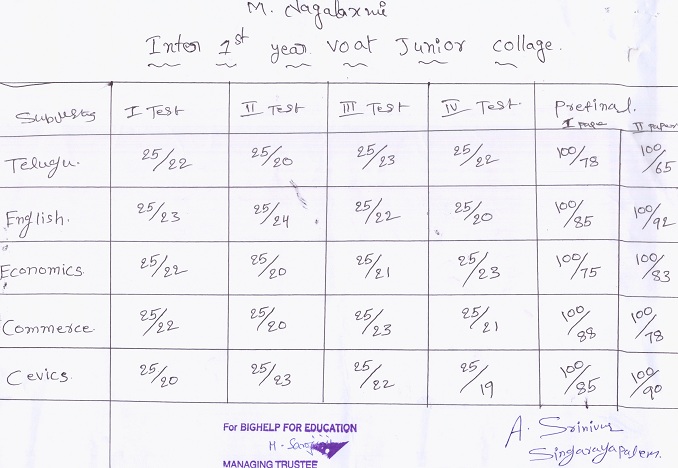 M. Nagalaxmi
Inter 1st year voat Junior collage.
Subjects I Test II Test III Test IV Test. Prefinal.
I Pape II Paper
Telugu. 25/22 25/20 25/23 25/22 100/78 100/65
English. 25/23 25/24 25/22 25/20 100/85 100/92
Economics 25/22 25/20 25/21 25/23 100/75 100/83
Commerce 25/22 25/20 25/23 25/21 100/88 100/78
Cevics. 25/20 25/23 25/22 25/19 100/85 100/90
For BIGHELP FOR EDUCATION
M.
MANAGING TRUSTEE
A. Srinivus
Singarayapalem.